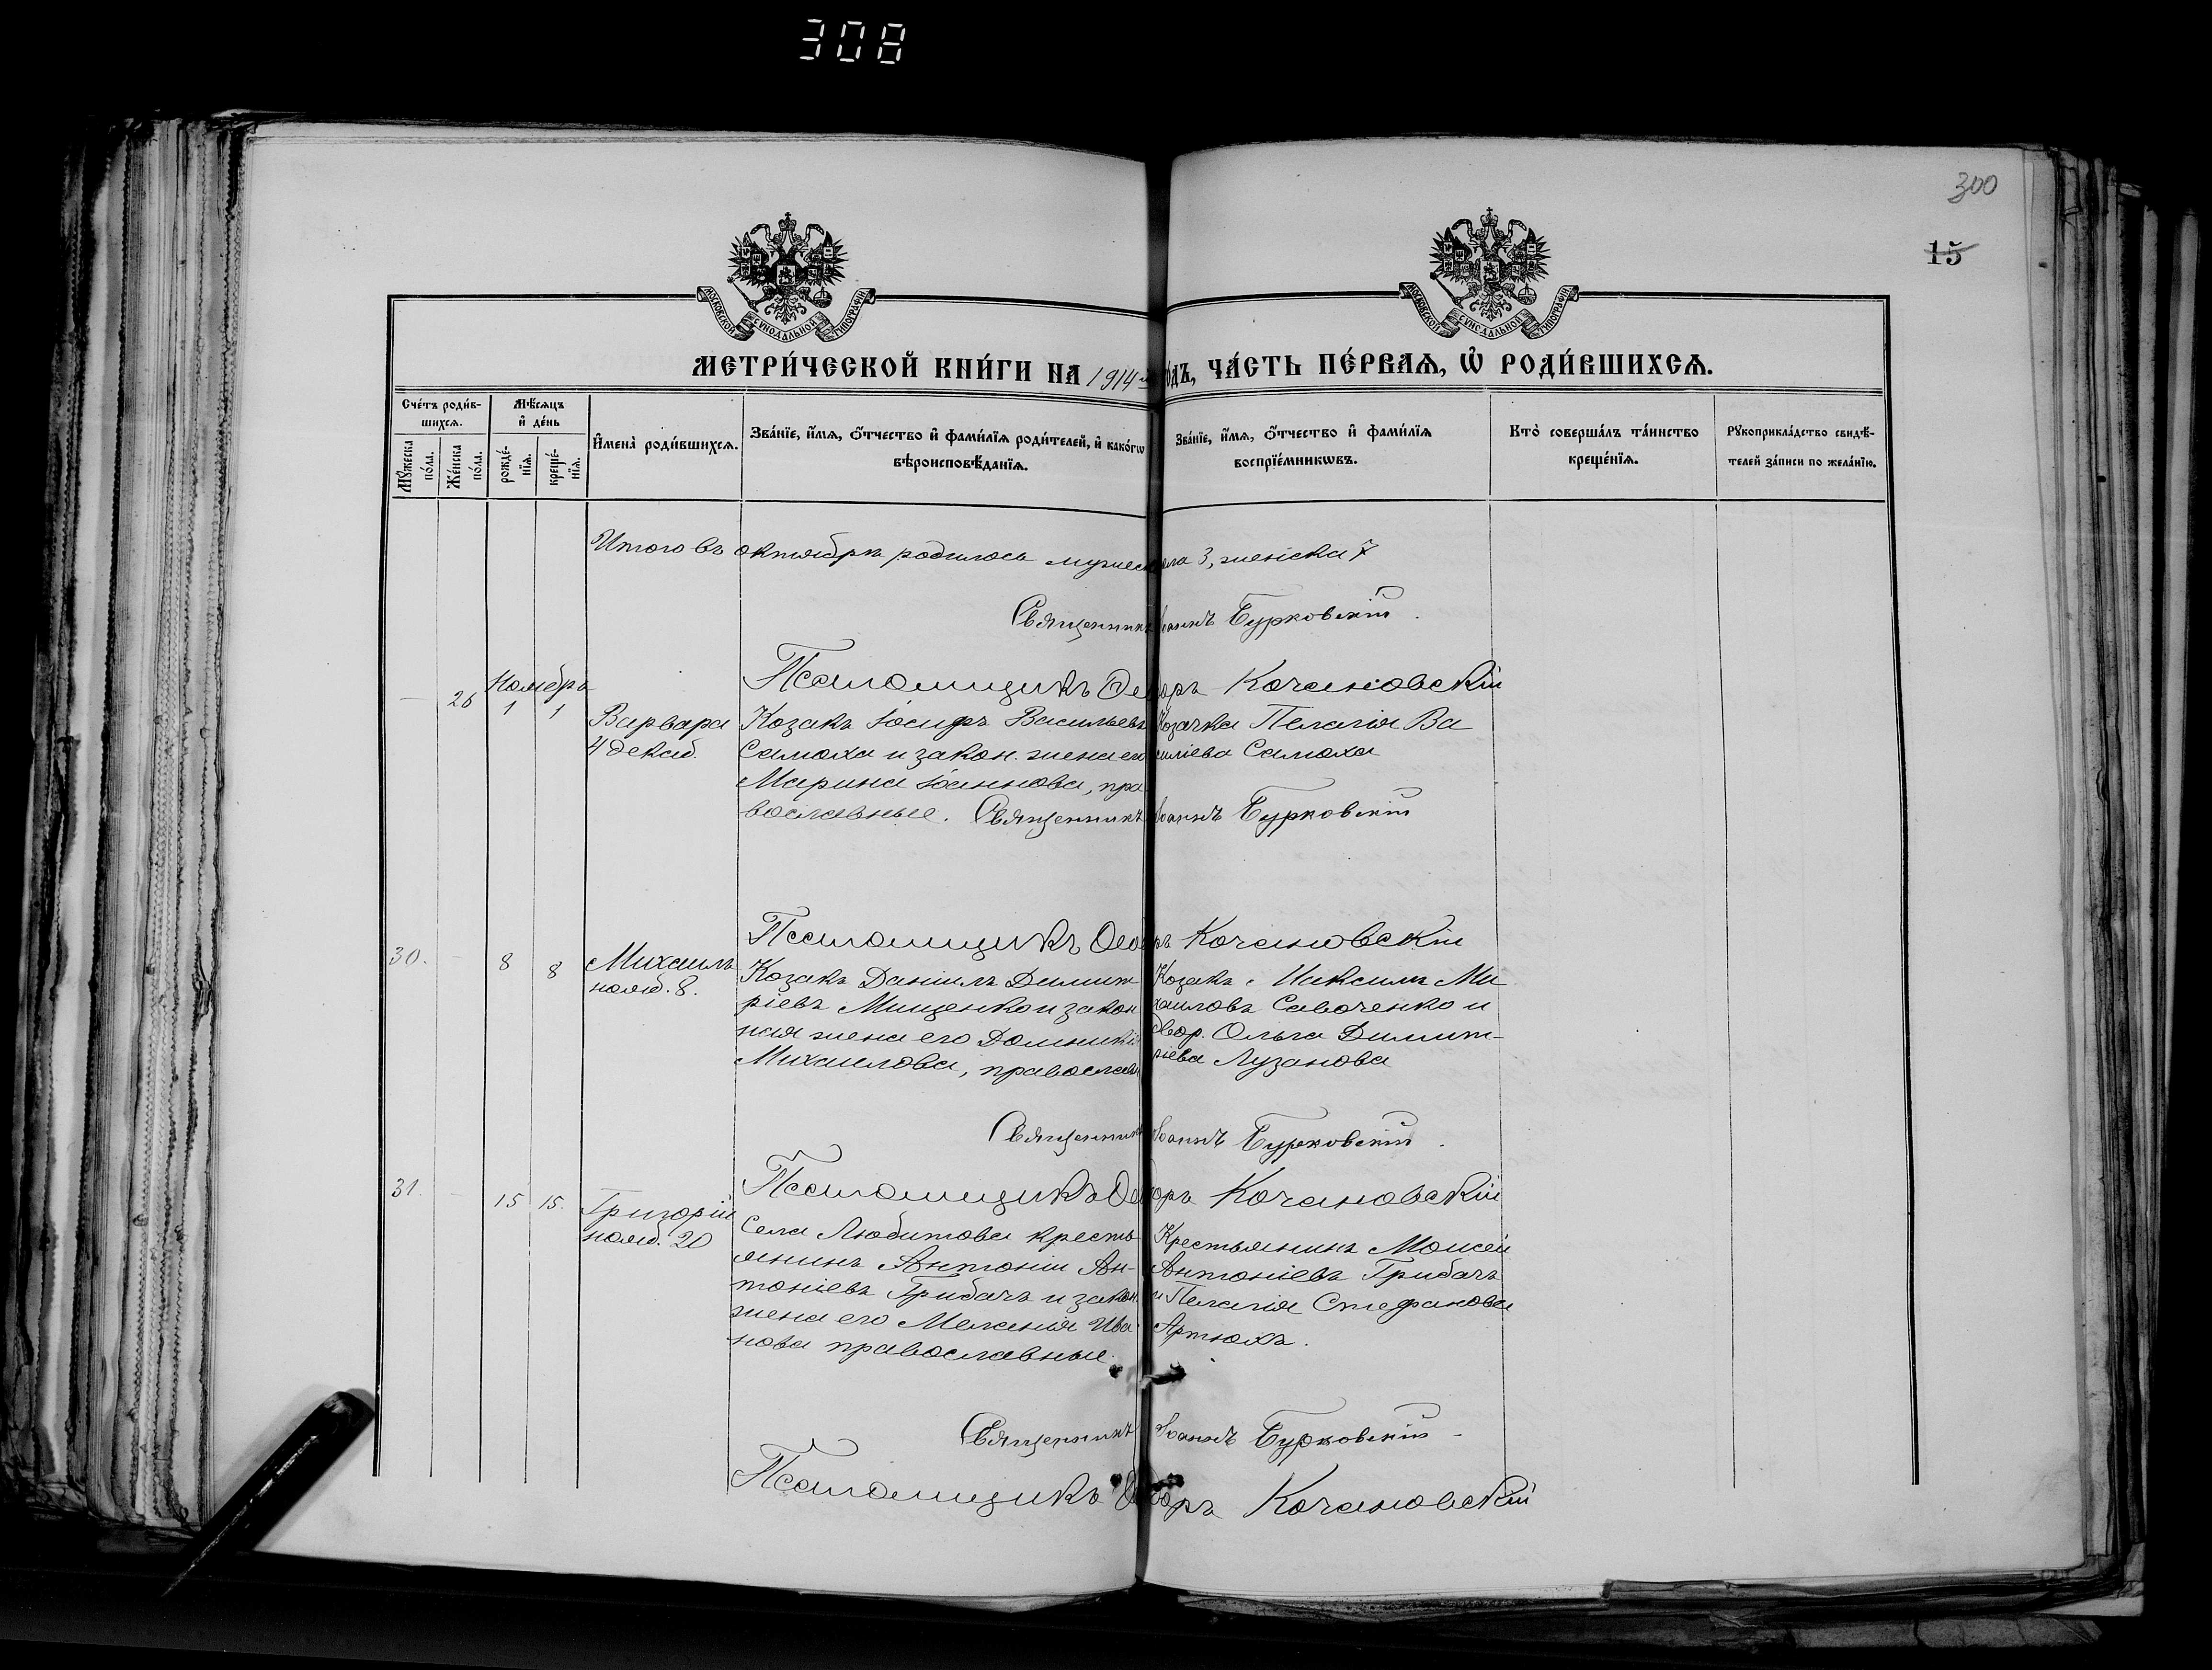 308
300
15
МОСКОВСКОЙ СѴНОДАЛЬНОЙ ТИПОГРАФІИ
МОСКОВСКОЙ СѴНОДАЛЬНОЙ ТИПОГРАФІИ
МЕТРИ́ЧЕСКОЙ КНИ́ГИ НА 1914 й о́дъ, ЧА́СТЬ ПЕ́РВАѦ, Ѡ҆ РОДИ́ВШИХСѦ.
Сче́тъ роди́в-
шихсѧ.
Мѣ́сѧцъ
и҆ де́нь
Мꙋ́жеска по́ла.
Же́нска по́ла.
рожде́-
нїѧ.
креще́-
нїѧ.
И҆мена̀ роди́вшихсѧ.
Зва́нїе, и҆́мѧ, ѻ҆́тчество и҆ фами́лїѧ роди́телей, и҆ како́гѡ
вѣроисповѣ́данїѧ.
Зва́нїе, и҆́мѧ, ѻ҆́тчество и҆ фами́лїѧ
воспрїе́мникѡвъ.
Кто̀ соверша́лъ та́инство
креще́нїѧ.
Рꙋкоприкла́дство свидѣ́-
телей за́писи по жела́нїю.
Итого въ октябрѣ родилось мужеска пола 3, женска 7
Священникъ Іоаннъ Бурковскій.
Псаломщикъ Ѳеодоръ Кочановскій
Ноябрь
— 26 1 1
Варвара
4 декаб.
Козакъ Іосифъ Васильевъ
Самоха и закон. жена его
Марина Іоаннова, пра
вославные.
Козачка Пелагія Ва
силіева Самоха
Священникъ Іоаннъ Бурковскій
Псаломщикъ Ѳеодоръ Кочановскій
30. — 8 8
Михаилъ
нояб. 8.
Козакъ Даніилъ Димит
ріевъ Мищенко и закон
ная жена его Домникія
Михаилова, православн
Козакъ Максимъ Ми
хаиловъ Савоченко и
двор. Ольга Димит-
ріева Лузанова
Священникъ Іоаннъ Бурковскій.
Псаломщикъ Ѳеодоръ Кочановскій
31. — 15 15.
Григорій
нояб. 20
Села Любитова кресть
янинъ Антоній Ан-
тоніевъ Грибачъ и закон.
жена его Меланія Ива
нова православные.
Крестьянинъ Моисей
Антоніевъ Грибачъ
и Пелагія Стефанова
Артюхъ.
Священникъ Іоаннъ Бурковскій
Псаломщикъ Ѳеодоръ Кочановскій